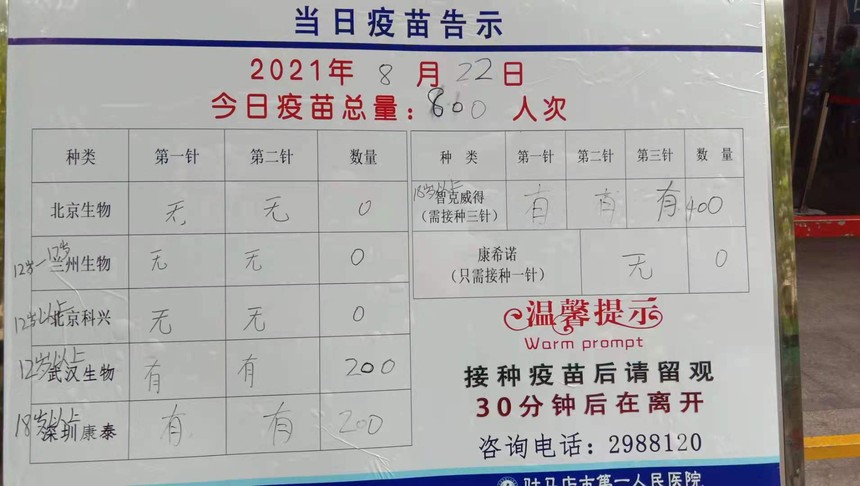 当日疫苗告示
2021年 8 月 22日
今日疫苗总量：800 人次
种类 第一针 第二针 数量
北京生物 无 无 0
兰州生物 无 无 0
12岁以上 北京科兴 无 无 0
12岁以上 武汉生物 有 有 200
18岁以上 深圳康泰 有 有 200
种 类 第一针 第二针 第三针 数 量
18岁以上 智克威得 有 有 有 400
（需接种三针）
康希诺 无 0
（只需接种一针）
温馨提示
Warm prompt
接种疫苗后请留观
30分钟后在离开
咨询电话：2988120
驻马店市第一人民医院